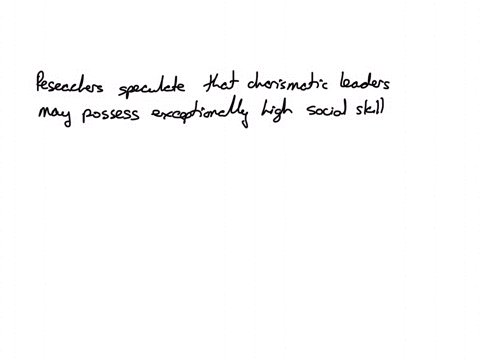 Reseachers speculate that charismatic leaders
may possess exceptionally high social skill